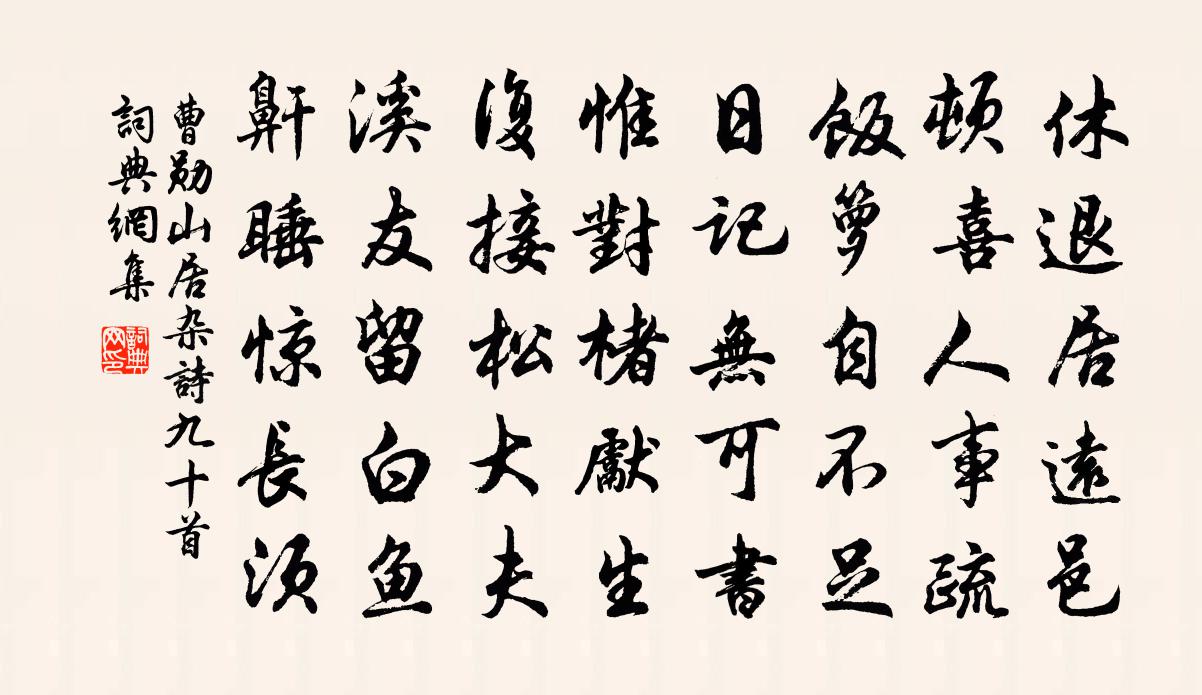 休退居遠邑
頓喜人事疏
飯籮自不足
日記無可書
惟對楮獻生
復接松大夫
溪友留白魚
鼾睡惊長須
曹勛山居杂詩九十首
詞典網集
詞典網印